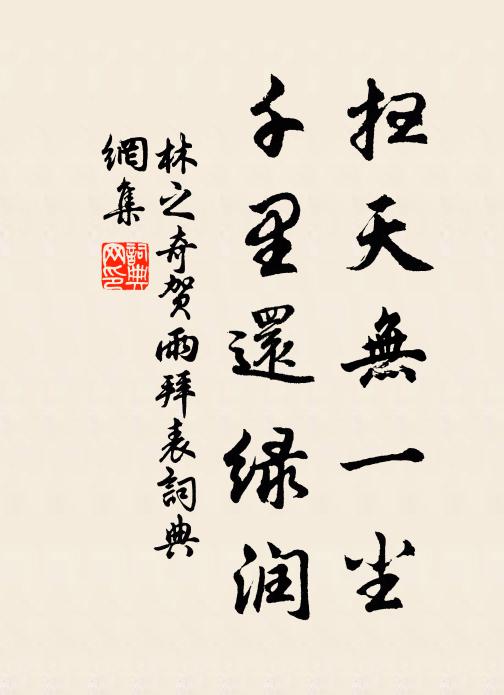 扫天無一尘
千里還绿润
林之奇贺雨拜表詞典
網集
詞典网印